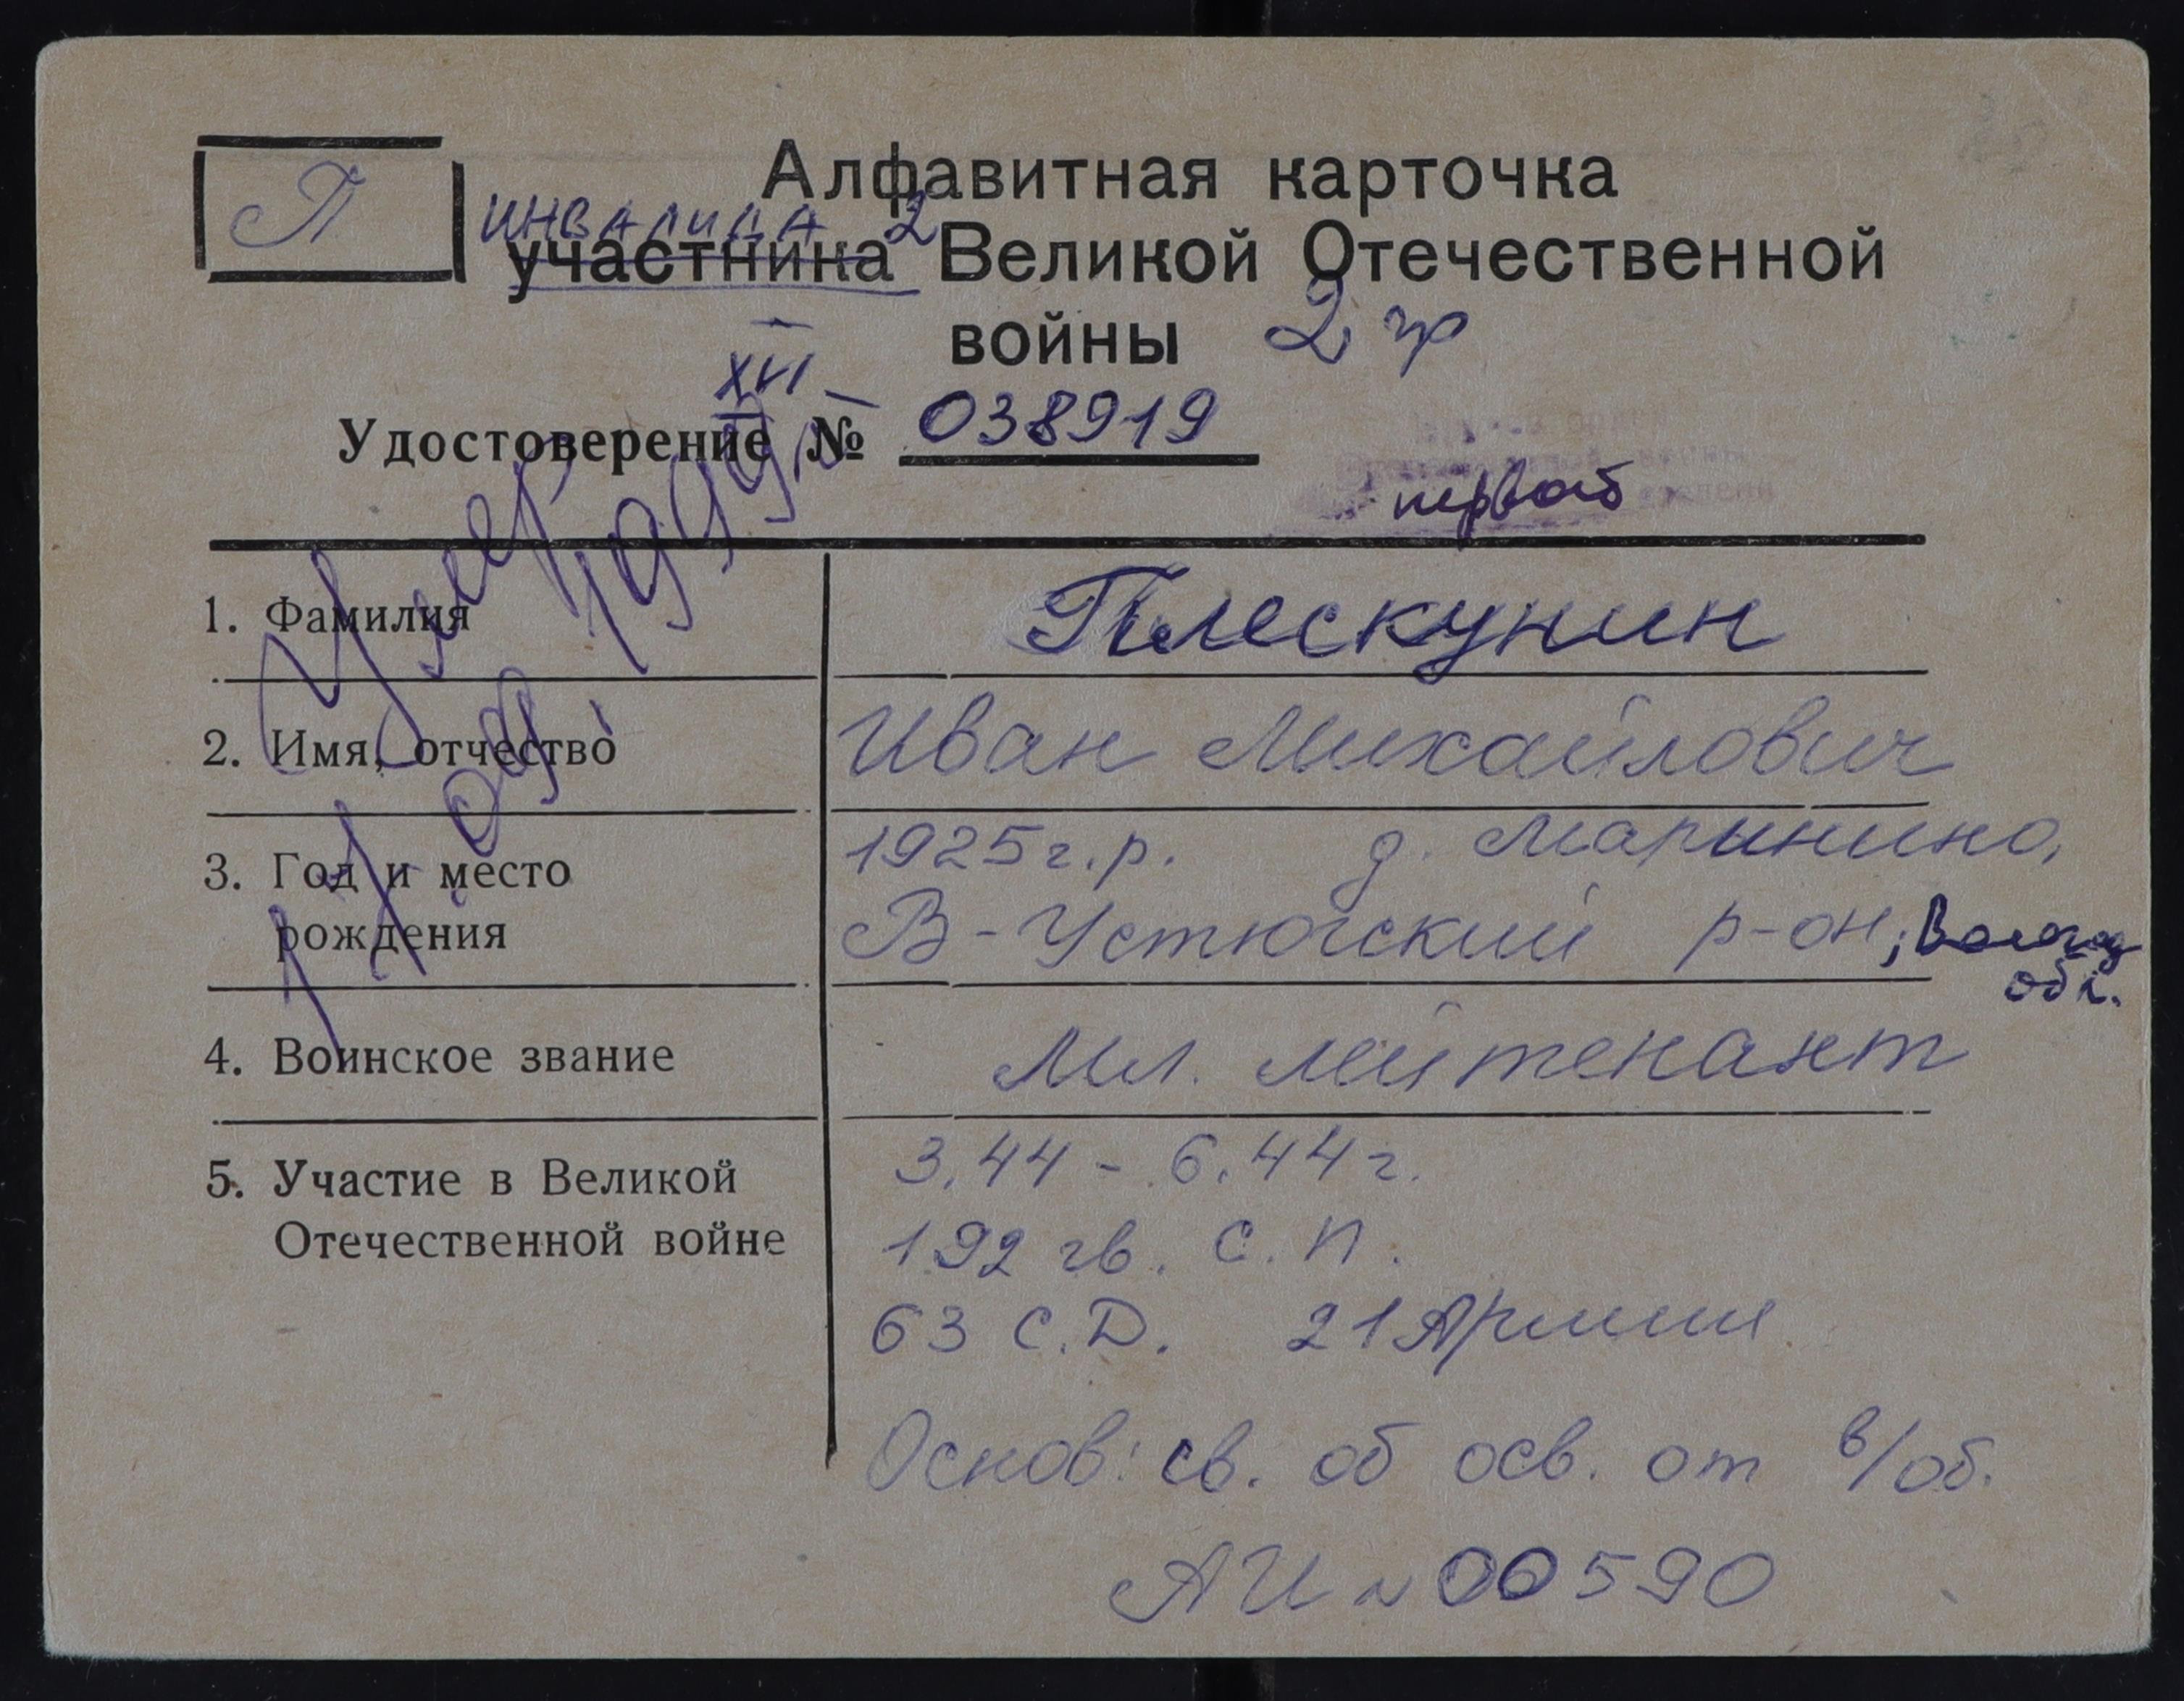 П
Алфавитная карточка
инвалида 2
участника Великой Отечественной
войны 2 гр
XVI
Удостоверение № 038919
первой
Умер 1999
1. Фамилия Плескунин
2. Имя, отчество Иван Михайлович
3. Год и место 1925 г.р. д. Маринино,
рождения В-Устюгский р-он, Волог
обл.
4. Воинское звание Мл. лейтенант
5. Участие в Великой 3.44 - 6.44 г.
Отечественной войне 192 гв. с.п.
63 С.Д. 21 Армии
Основ: св. об осв. от в/об.
АИ № 00590